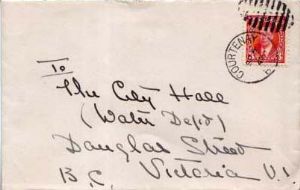 COURTENAY
To
The City Hall
(Water Dept)
Douglas Street
Victoria V.I
B.C.